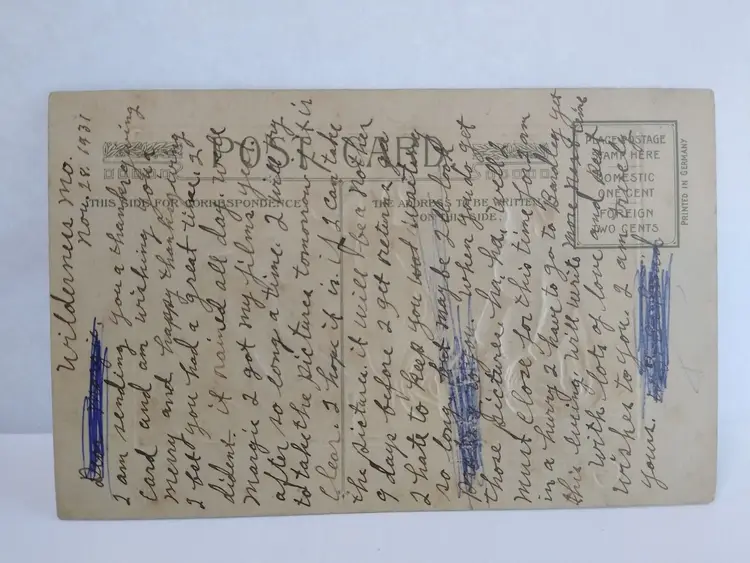 POST CARD
THIS SIDE FOR CORRESPONDENCE
THE ADDRESS TO BE WRITTEN
ON THIS SIDE.
PLACE POSTAGE
STAMP HERE
DOMESTIC
ONE CENT
FOREIGN
TWO CENTS
PRINTED IN GERMANY
Wilderness Mo.
Nov. 28. 1931
Dear
I am sending you a thanksgiving
card and am wishing you a
merry and happy thanksgiving
I bet you had a great time. I
dident. it rained all day. well
Margie I got my films yes
after so long a time. I will try
to take the pictures tomorrow if it is
clear. I hope it is. if I can take
the picture it will be a nother
9 days before I get returns and
I hate to keep you wait waiting
so long but maybe I can look
when you do get
those pictures ha, ha, well
must close for this time for I am
in a hurry I have to go to Bradley yet
this evening. Will write more next time
With lots of love and best
wishes to you. I am verily
yours.